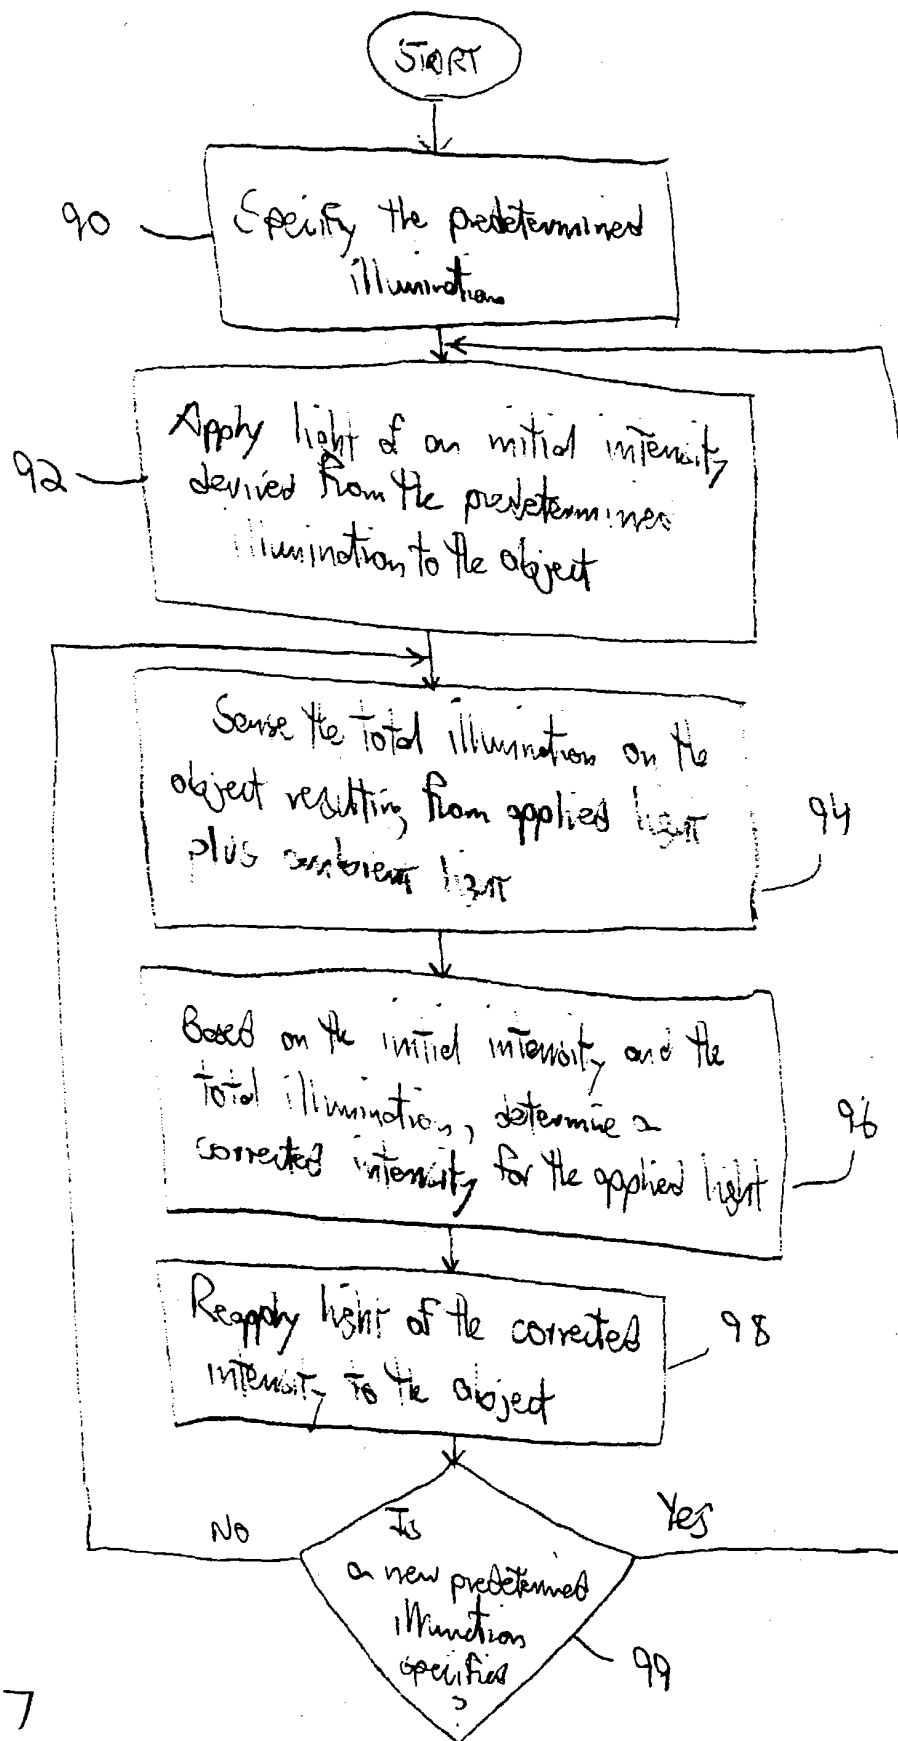 START
90
Specify the predetermined
illumination
Apply light of an initial intensity
92
derived from the predetermined
illumination to the object
Sense the total illumination on the
object resulting from applied light
94
plus ambient light
Based on the initial intensity and the
total illumination, determine a
96
corrected intensity for the applied light
Reapply light of the corrected
98
intensity to the object
No
Yes
Is
a new predetermined
illumination
specified
?
99
7